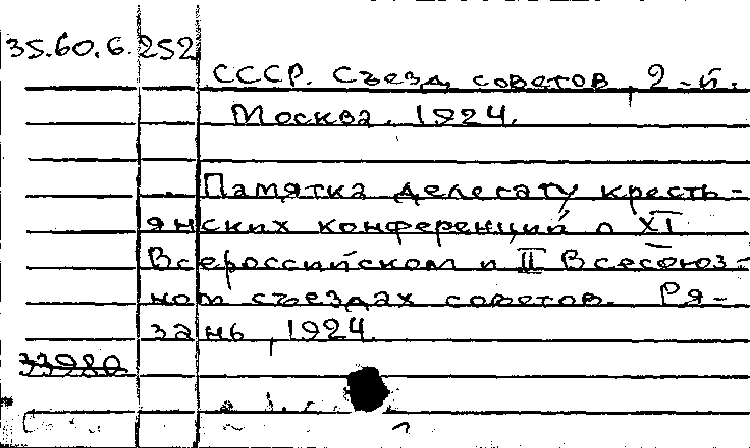 35.60.6.252
СССР. Съезд советов, 2-й.
Москва. 1924.
Памятка делегату кресть-
янских конференций о XI
Всероссийском и II Всесоюз-
ном съездах советов. Ря-
зань, 1924
33980